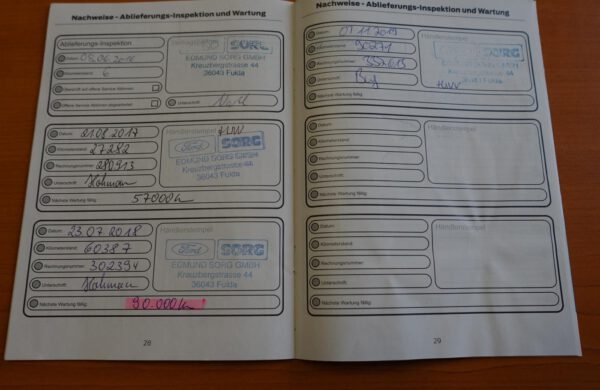 Nachweise - Ablieferungs-Inspektion und Wartung
Ablieferungs-Inspektion
Datum: 05.06.2016
Kilometerstand: 6
Überprüft auf offene Service-Aktionen
Offene Service-Aktionen abgearbeitet
Unterschrift
SORG
EGMUND SORG GMBH
Kreuzbergstrasse 44
36043 Fulda
Datum: 01.08.2017
Kilometerstand: 27282
Rechnungsnummer: 280913
Unterschrift:
Nächste Wartung fällig: 57000km
Händlerstempel HUW
Ford SORG
EGMUND SORG GMBH
Kreuzbergstrasse 44
36043 Fulda
Datum: 23.07.2018
Kilometerstand: 60387
Rechnungsnummer: 302394
Unterschrift:
Nächste Wartung fällig: 90.000km
Händlerstempel
Ford SORG
EGMUND SORG GMBH
Kreuzbergstrasse 44
36043 Fulda
28
Nachweise - Ablieferungs-Inspektion und Wartung
Datum: 07.11.2019
Kilometerstand: 90271
Rechnungsnummer:
Unterschrift:
Nächste Wartung fällig:
Händlerstempel
SORG
EGMUND SORG GMBH
Kreuzbergstrasse 44
36043 Fulda
HUW
Datum:
Kilometerstand:
Rechnungsnummer:
Unterschrift:
Nächste Wartung fällig:
Händlerstempel
Datum:
Kilometerstand:
Rechnungsnummer:
Unterschrift:
Nächste Wartung fällig:
Händlerstempel
29